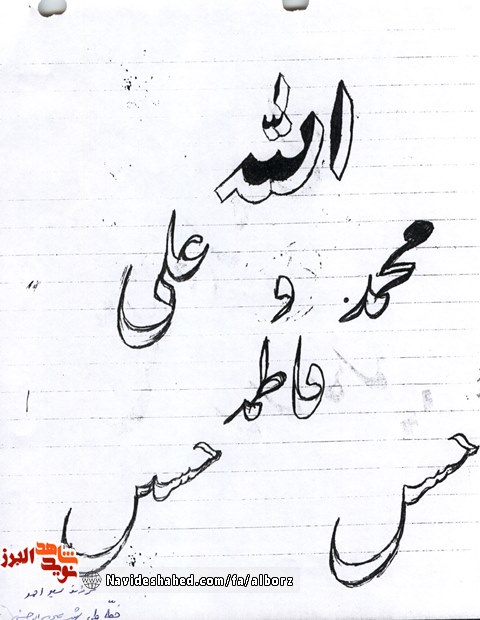 الله
محمد و علی
فاطمه
حسن حسین
نوید شاهد البرز
Navideshahed.com/fa/alborz